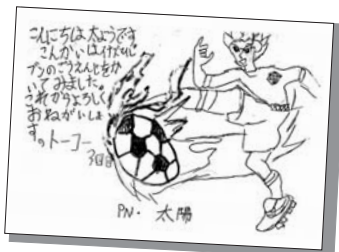 こんにちは太ようです
こんかいは
ブンのごうえんじをか
いてみました。
これからよろしく
おねがいしま
すのトーコー
3回目
PN. 太陽